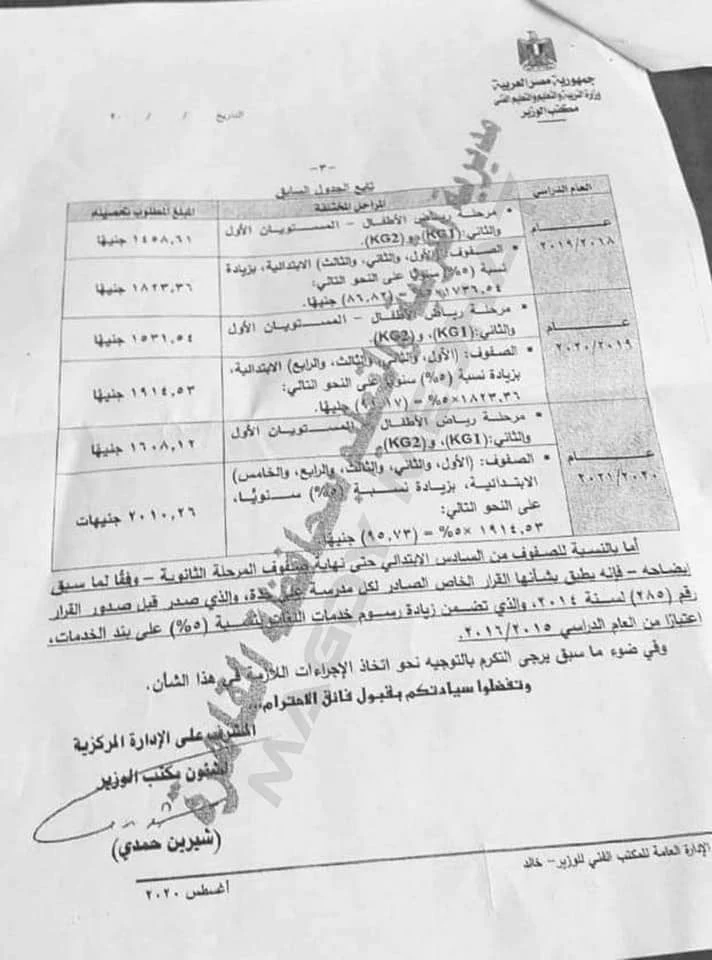 جمهورية مصر العربية
وزارة التربية والتعليم والتعليم الفني
مكتب الوزير
التاريخ / / ٢٠
-٣-
تابع الجدول السابق
العام الدراسي
المراحل المختلفة
المبلغ المطلوب تحصيله
عــــام
٢٠١٩/٢٠١٨
• مرحلة رياض الأطفال – المستويان الأول
والثاني:(KG1)، و(KG2).
١٤٥٨,٦١ جنيهًا
• الصفوف: (الأول، والثاني، والثالث) الابتدائية، بزيادة
نسبة (٥%) سنويًا على النحو التالي:
١٧٣٦,٥٤ (٨٦,٨٢) جنيهًا.
١٨٢٣,٣٦ جنيهًا
عــــام
٢٠٢٠/٢٠١٩
• مرحلة رياض الأطفال – المستويان الأول
والثاني:(KG1)، و(KG2).
١٥٣١,٥٤ جنيهًا
• الصفوف: (الأول، والثاني، والثالث، والرابع) الابتدائية،
بزيادة نسبة (٥%) سنويًا على النحو التالي:
١٨٢٣,٣٦×٥% = جنيهًا.
١٩١٤,٥٣ جنيهًا
عــــام
٢٠٢١/٢٠٢٠
• مرحلة رياض الأطفال – المستويان الأول
والثاني:(KG1)، و(KG2).
١٦٠٨,١٢ جنيهًا
• الصفوف: (الأول، والثاني، والثالث، والرابع، والخامس)
الابتدائية، بزيادة نسبة (٥%) سنويًا،
على النحو التالي:
١٩١٤,٥٣ ×٥% = (٩٥,٧٣) جنيهًا.
٢٠١٠,٢٦ جنيهات
أما بالنسبة للصفوف من السادس الابتدائي حتى نهاية صفوف المرحلة الثانوية – وفقًا لما سبق
إيضاحه – فإنه يطبق بشأنها القرار الخاص الصادر لكل مدرسة على حدة، والذي صدر قبل صدور القرار
رقم (٢٨٥) لسنة ٢٠١٤، والذي تضمن زيادة رسوم خدمات اللغات بنسبة (٥%) على بند الخدمات،
اعتبارًا من العام الدراسي ٢٠١٦/٢٠١٥.
وفي ضوء ما سبق يرجى التكرم بالتوجيه نحو اتخاذ الإجراءات اللازمة في هذا الشأن.
وتفضلوا سيادتكم بقبول فائق الاحترام،،،
المشرف على الإدارة المركزية
لشئون مكتب الوزير
(شيرين حمدي)
الإدارة العامة للمكتب الفني للوزير- خالد
أغسطس ٢٠٢٠
مديرية التربية والتعليم بمحافظة القاهرة